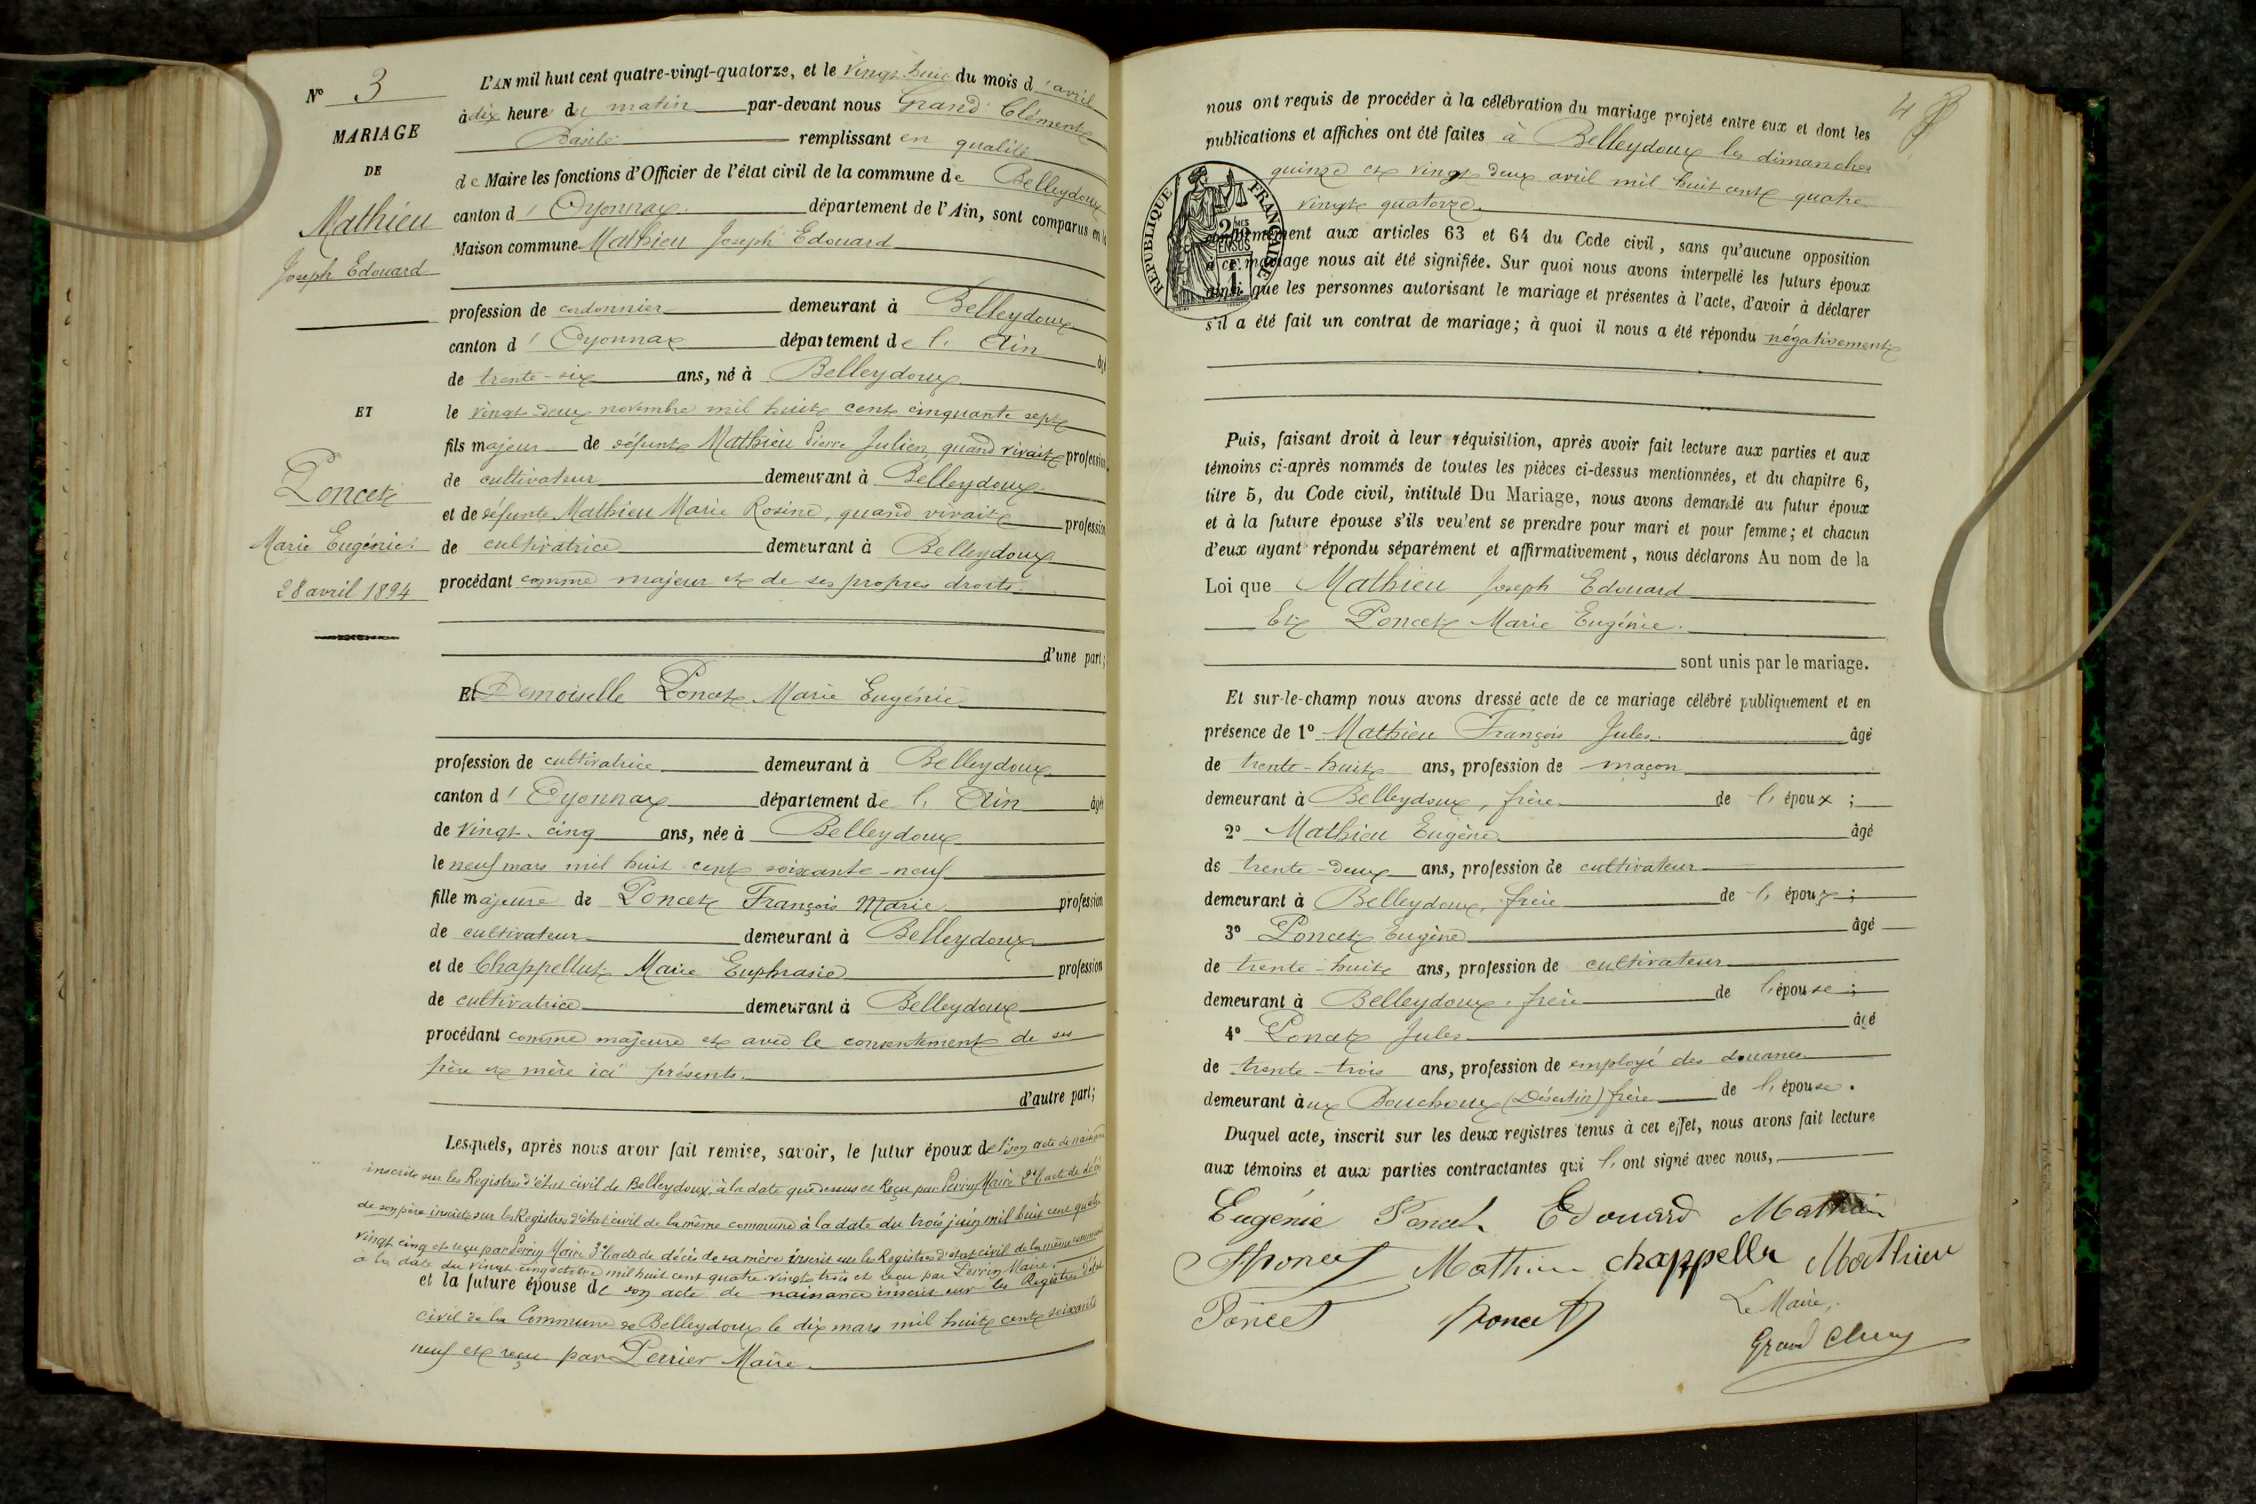 N° 3
MARIAGE
DE
Mathieu
Joseph Edouard
ET
Poncet
Marie Eugénie
28 avril 1894
L'AN mil huit cent quatre-vingt-quatorze, et le vingt huit du mois d'avril
à dix heure du matin par-devant nous Grand Clément
Basile remplissant en qualité
de Maire les fonctions d'Officier de l'état civil de la commune de Belleydoux
canton d'Oyonnax département de l'Ain, sont comparus en la
Maison commune Mathieu Joseph Edouard
profession de cordonnier demeurant à Belleydoux
canton d'Oyonnax département de l'Ain âgé
de trente-six ans, né à Belleydoux
le vingt deux novembre mil huit cent cinquante sept
fils majeur de défunt Mathieu Pierre Julien, quand vivait profession
de cultivateur demeurant à Belleydoux
et de défunte Mathieu Marie Rosine, quand vivait profession
de cultivatrice demeurant à Belleydoux
procédant comme majeur et de ses propres droits
d'une part;
Et Demoiselle Poncet Marie Eugénie
profession de cultivatrice demeurant à Belleydoux
canton d'Oyonnax département de l'Ain âgée
de vingt-cinq ans, née à Belleydoux
le neuf mars mil huit cent soixante-neuf
fille majeure de Poncet François Marie profession
de cultivateur demeurant à Belleydoux
et de Chappellut Marie Euphrasie profession
de cultivatrice demeurant à Belleydoux
procédant comme majeure et avec le consentement de ses
père et mère ici présents.
d'autre part;
Lesquels, après nous avoir fait remise, savoir, le futur époux de 1° son acte de naissance
inscrite sur les Registres d'état civil de Belleydoux, à la date que dessus et reçu par Perrin Maire 2° l'acte de décès
de son père inscrite sur les Registres d'état civil de la même commune à la date du trois juin mil huit cent quatre
vingt cinq et reçu par Perrin Maire 3° l'acte de décès de sa mère inscrit sur les Registres d'état civil de la même commune
à la date du vingt cinq octobre mil huit cent quatre-vingt trois et reçu par Perrin Maire.
et la future épouse de son acte de naissance inscrit sur les Registres d'état
civil de la Commune de Belleydoux le dix mars mil huit cent soixante
neuf et reçu par Perrier Maire.
4
nous ont requis de procéder à la célébration du mariage projeté entre eux et dont les
publications et affiches ont été faites à Belleydoux les dimanches
quinze et vingt deux avril mil huit cent quatre
vingt quatorze.
RÉPUBLIQUE FRANÇAISE
conformément aux articles 63 et 64 du Code civil, sans qu'aucune opposition
à ce mariage nous ait été signifiée. Sur quoi nous avons interpellé les futurs époux
ainsi que les personnes autorisant le mariage et présentes à l'acte, d'avoir à déclarer
s'il a été fait un contrat de mariage; à quoi il nous a été répondu négativement
Puis, faisant droit à leur réquisition, après avoir fait lecture aux parties et aux
témoins ci-après nommés de toutes les pièces ci-dessus mentionnées, et du chapitre 6,
titre 5, du Code civil, intitulé Du Mariage, nous avons demandé au futur époux
et à la future épouse s'ils veulent se prendre pour mari et pour femme; et chacun
d'eux ayant répondu séparément et affirmativement, nous déclarons Au nom de la
Loi que Mathieu Joseph Edouard
Et Poncet Marie Eugénie.
sont unis par le mariage.
Et sur-le-champ nous avons dressé acte de ce mariage célébré publiquement et en
présence de 1° Mathieu François Jules âgé
de trente-huit ans, profession de maçon
demeurant à Belleydoux, frère de l'époux;
2° Mathieu Eugène âgé
de trente-deux ans, profession de cultivateur
demeurant à Belleydoux, frère de l'époux;
3° Poncet Eugène âgé
de trente-huit ans, profession de cultivateur
demeurant à Belleydoux, frère de l'épouse;
4° Poncet Jules âgé
de trente-trois ans, profession de employé des douanes
demeurant aux Bouchoux (Désertin) frère de l'épouse.
Duquel acte, inscrit sur les deux registres tenus à cet effet, nous avons fait lecture
aux témoins et aux parties contractantes qui l'ont signé avec nous,
Eugénie Poncet Edouard Mathieu
Poncet Mathieu Chappellu Mathieu
Poncet Poncet Le Maire,
Grand Clém